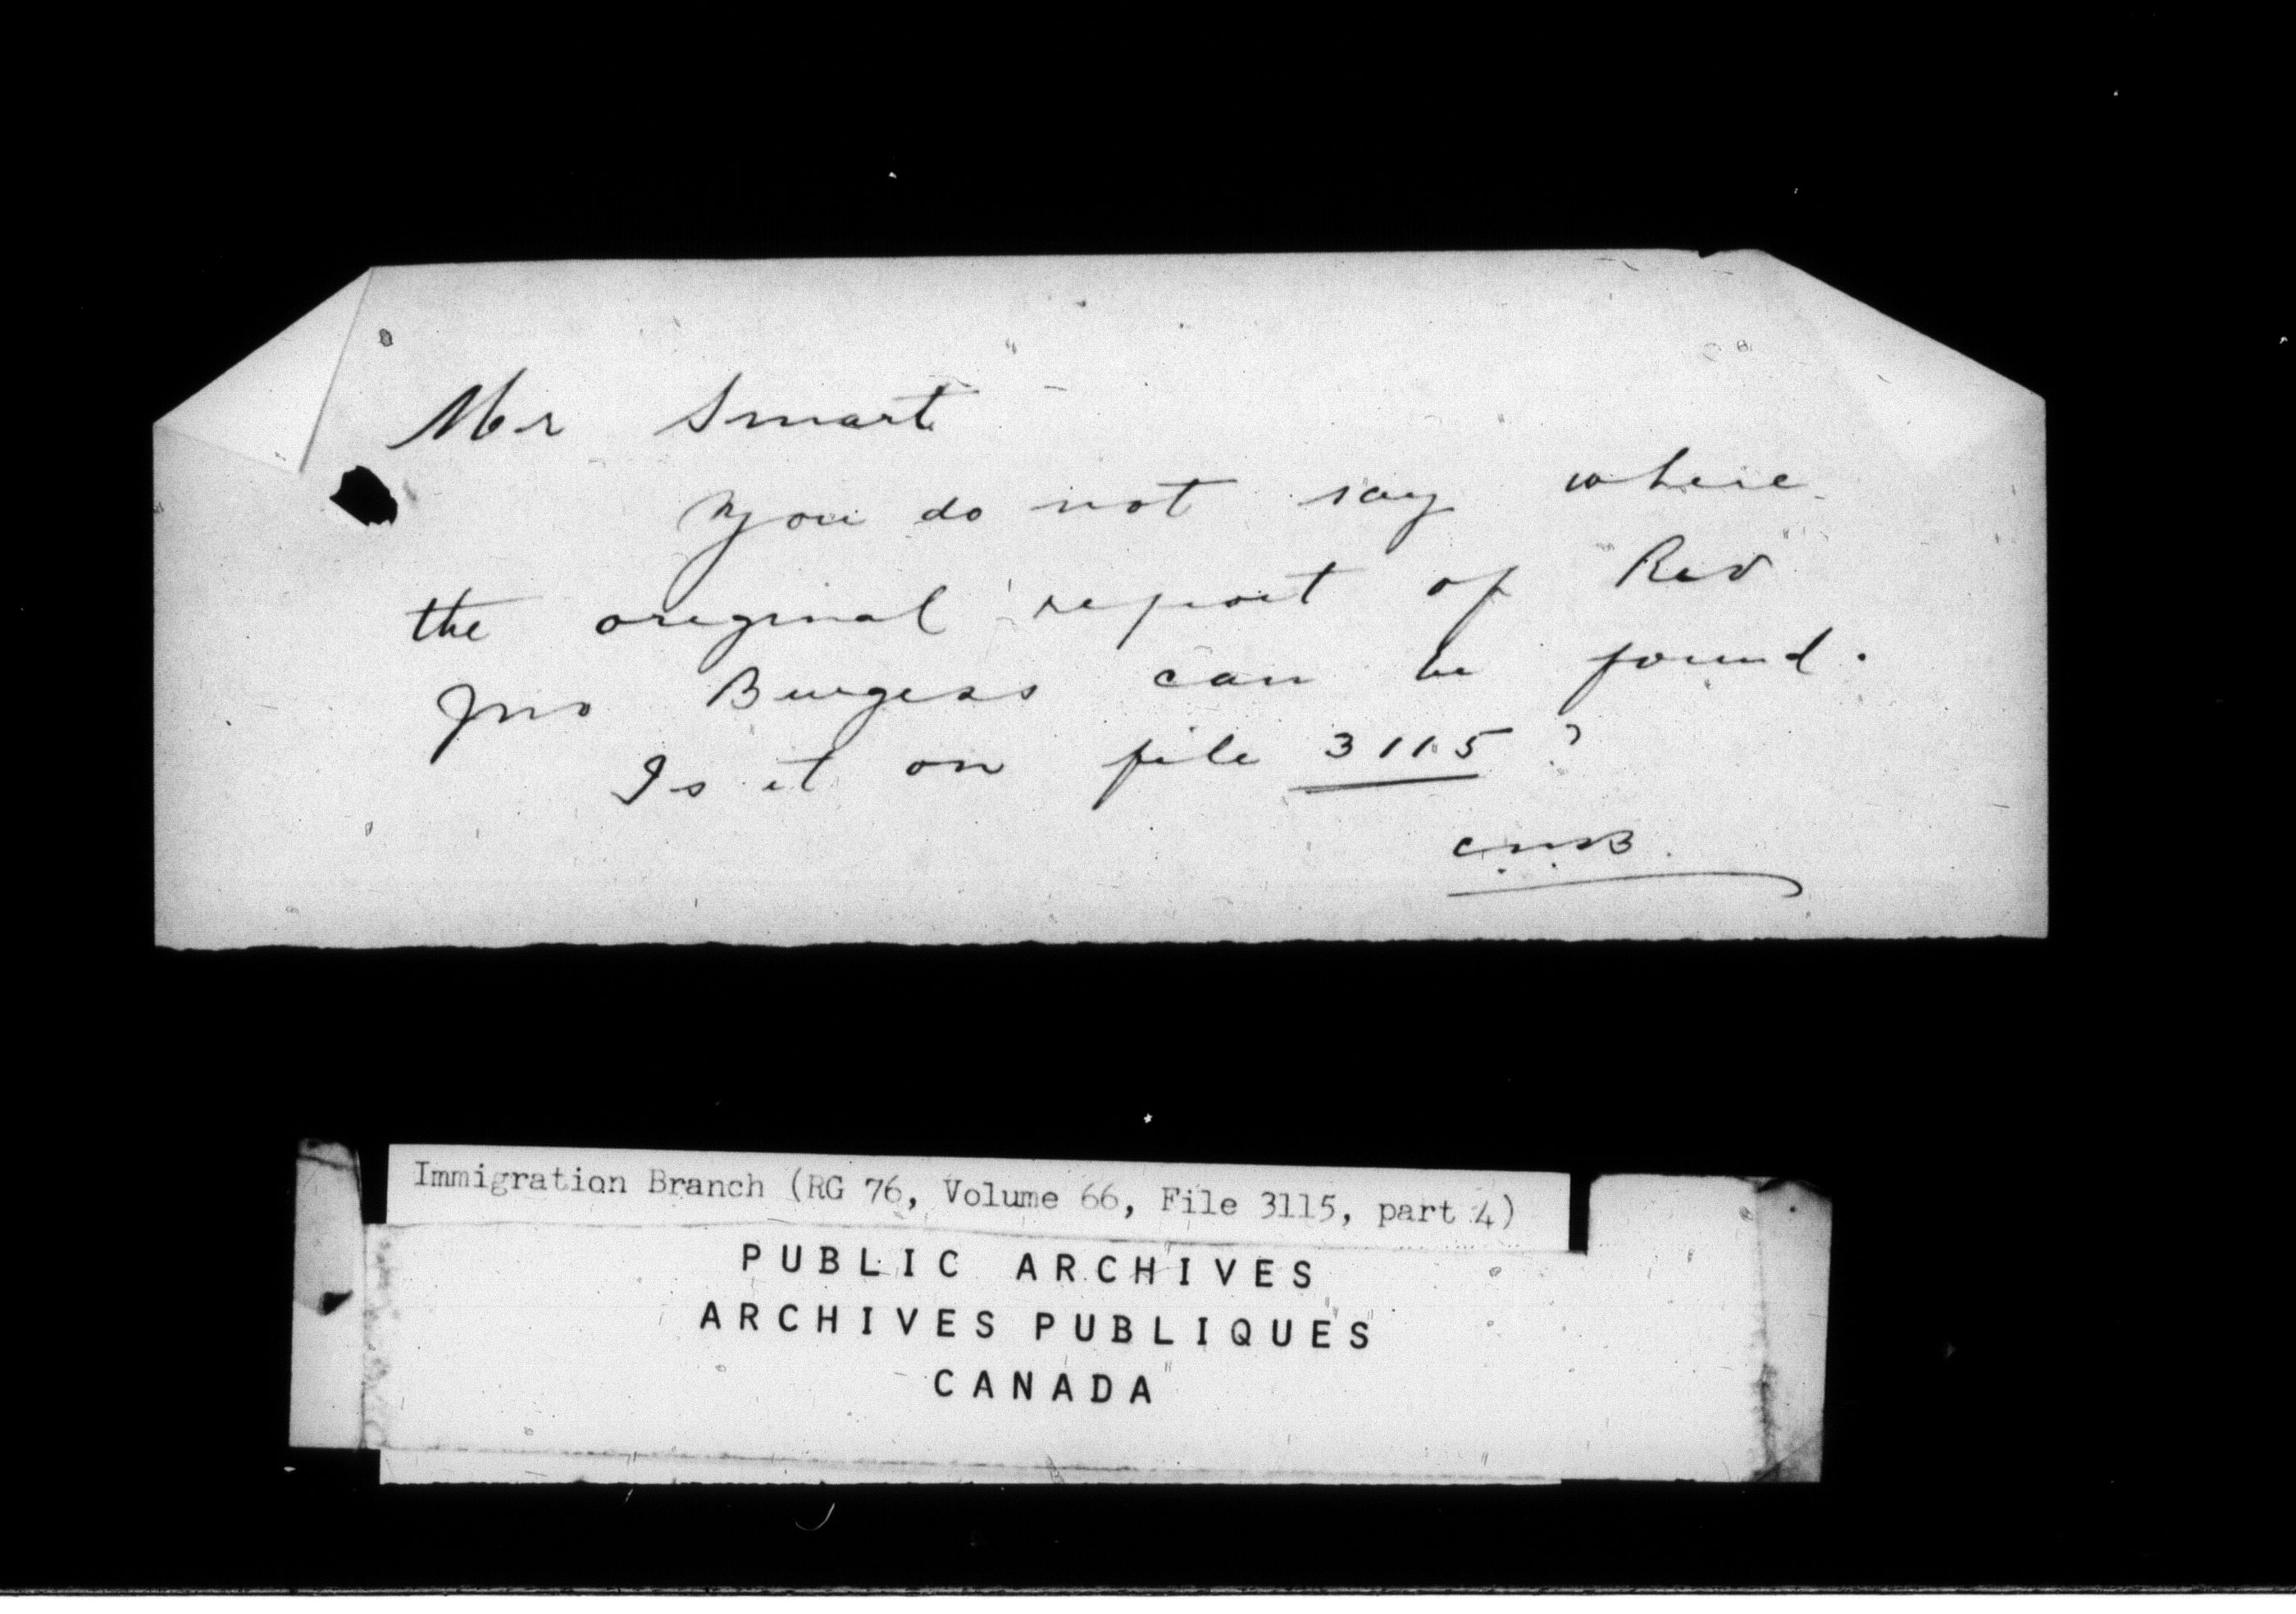 Mr Smart
You do not say where
the original report of Rev
Jno Burgess can be found.
Is it on file 3115 ?
Immigration Branch (RG 76, Volume 66, File 3115, part 4)
PUBLIC ARCHIVES
ARCHIVES PUBLIQUES
CANADA